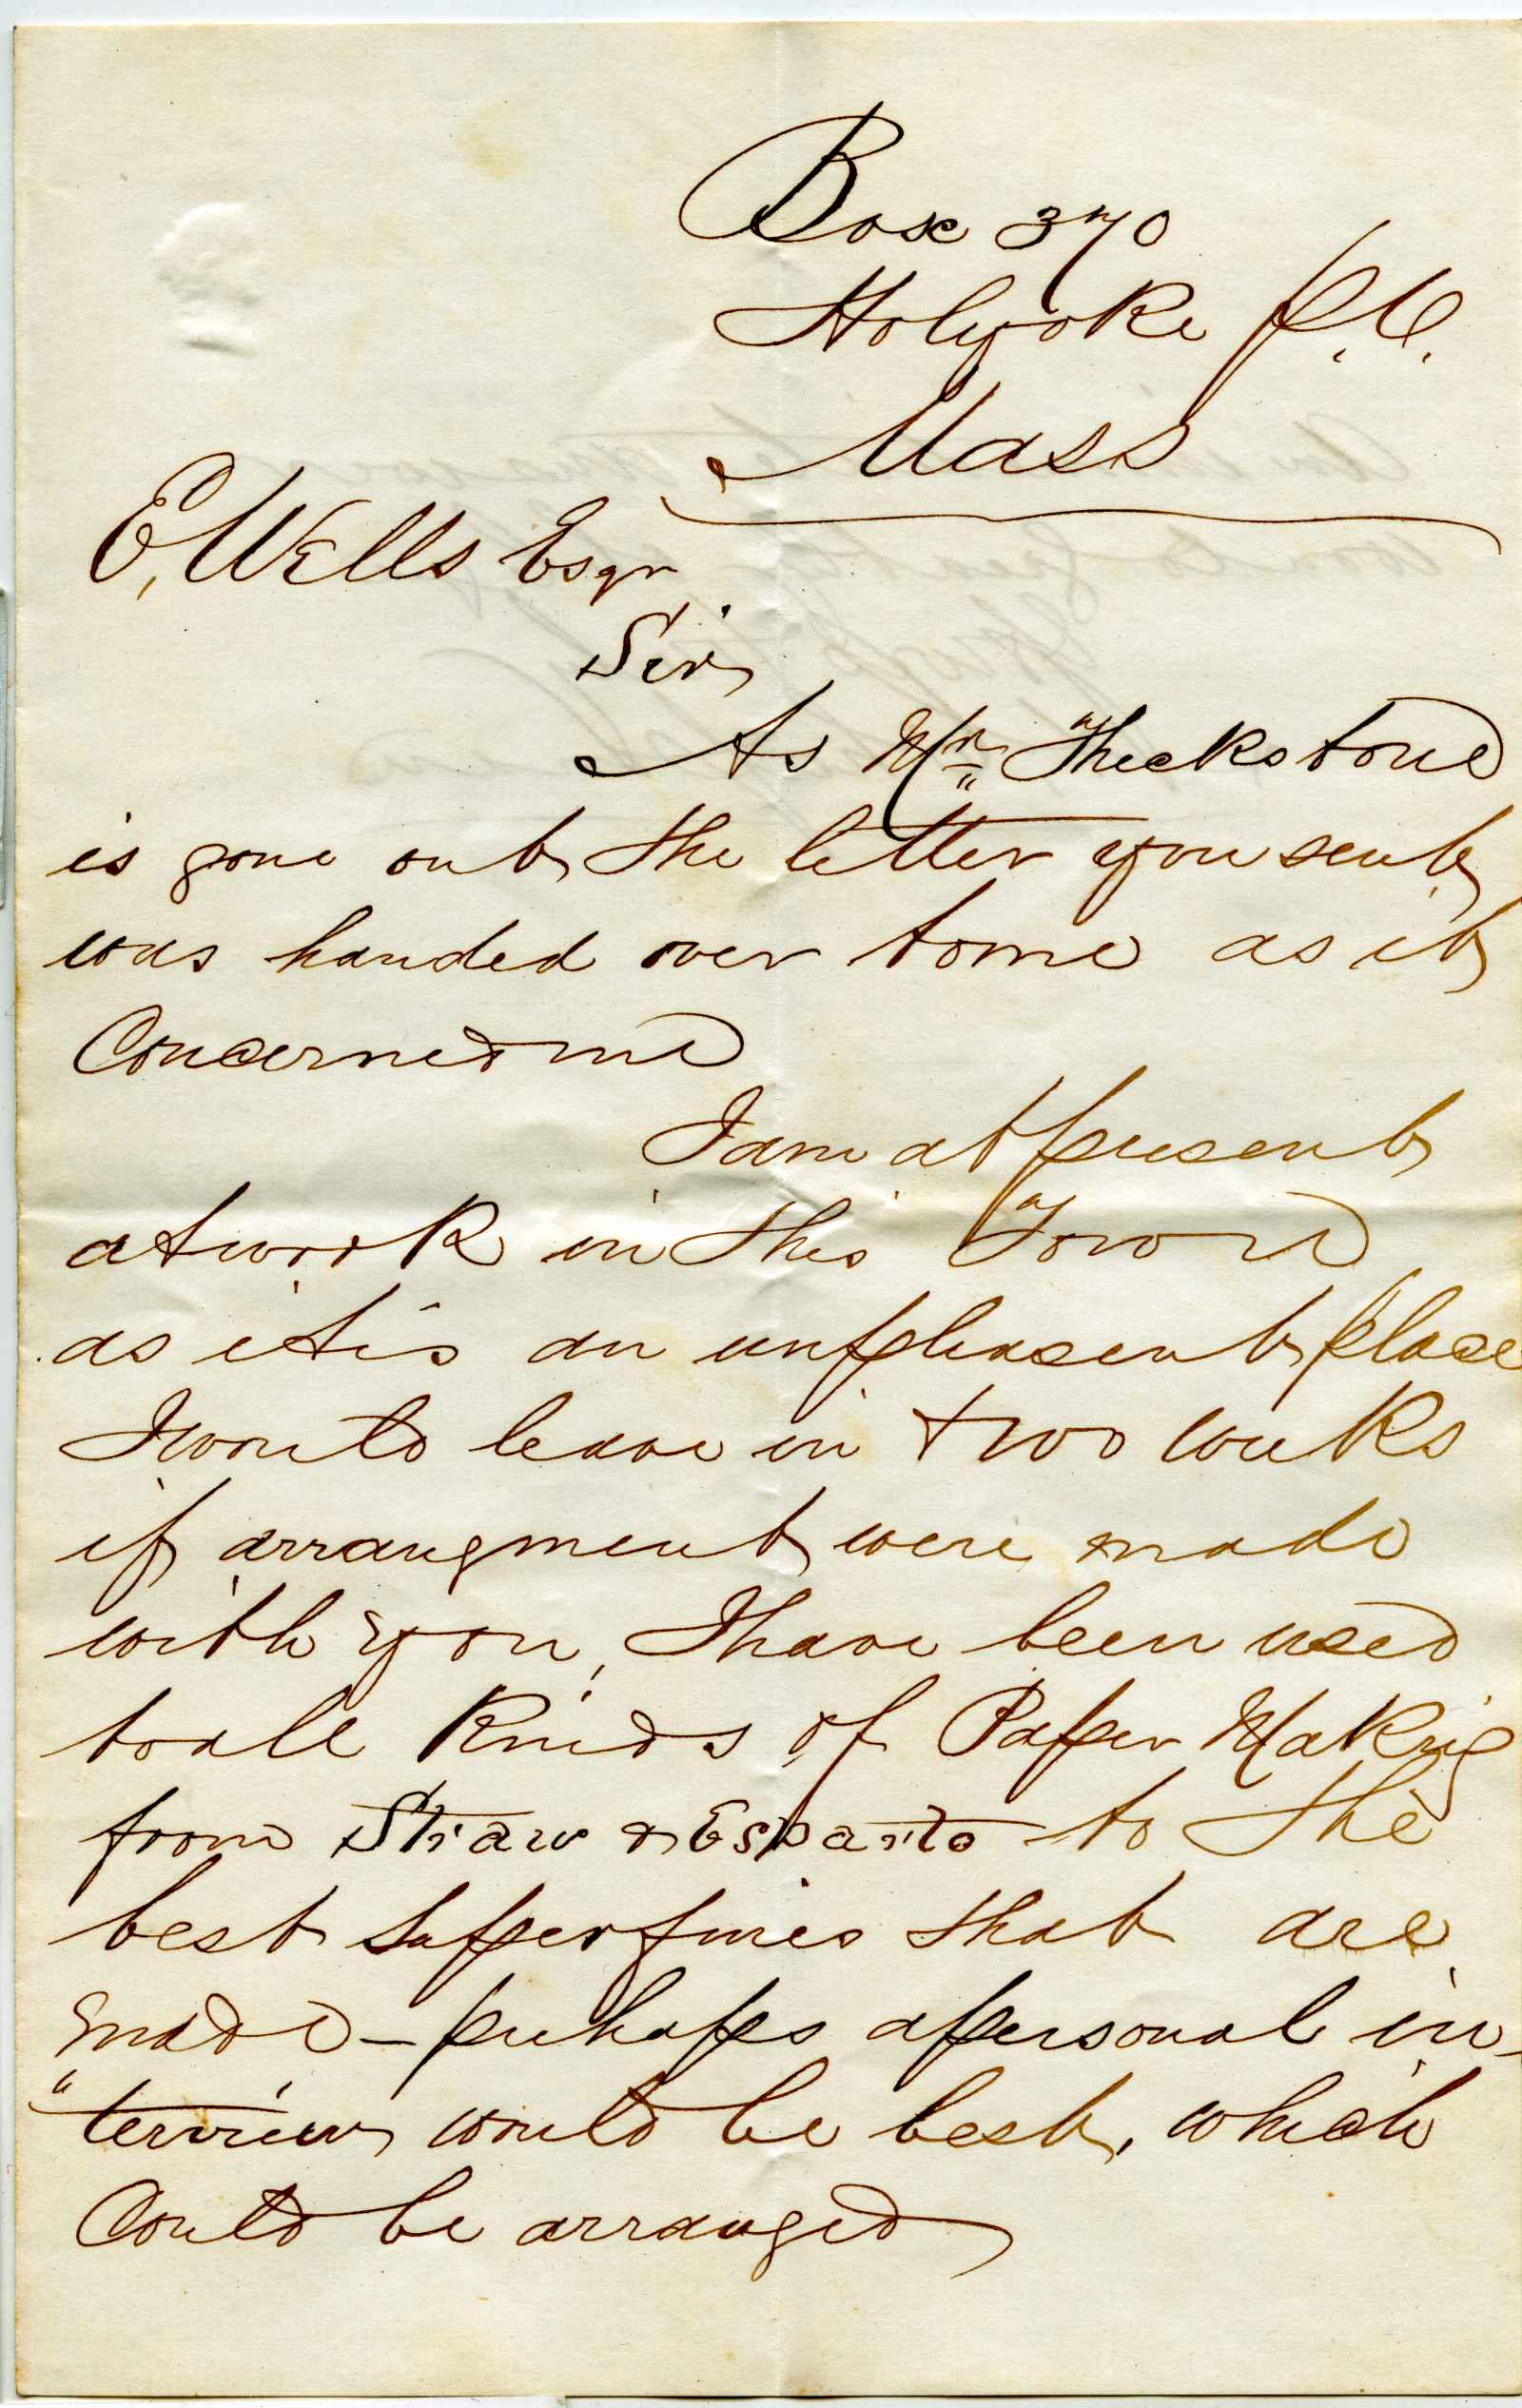 Box 370
Holyoke P.O.
Mass
E. Wells Esqr
Sir
As Mr Theckstone
is gone out the letter you sent
was handed over to me as it
Concerned me
I am at present
at work in this Town
as it is an unpleasent place
I would leave in two weeks
if arrangment were made
with you, I have been used
to all Kinds of Paper Making
from Straw & Esparto to the
best Superfines that are
made - perhaps a personal in-
"terview would be best, which
Could be arranged